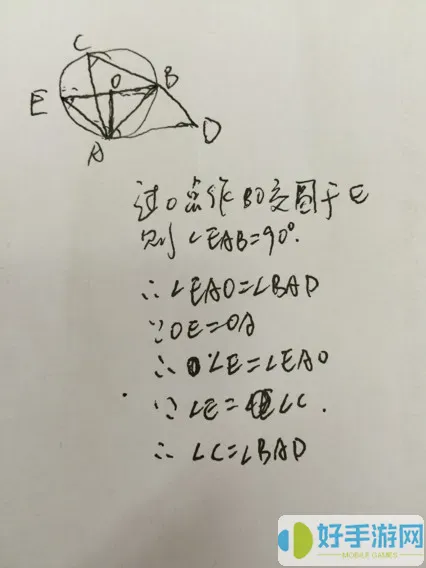 C
O
B
E
D
A
过O点作BO交圆于E
则∠EAB=90°.
∴∠EAO=∠BAD
∵OE=OA
∴∠E=∠EAO
∵∠E=∠C.
∴∠C=∠BAD
好手游网
MOBILE GAMES